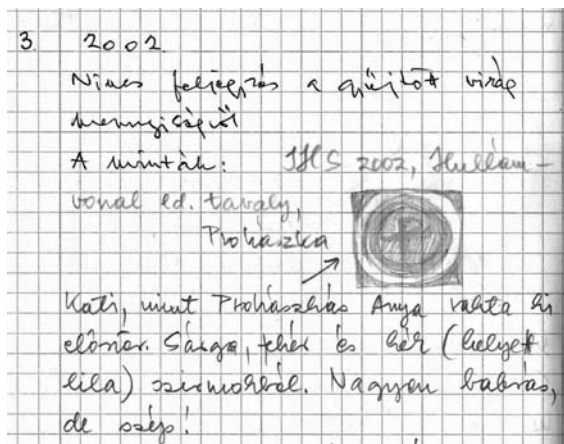 3. 2002.
Nincs feljegyzés a gyűjtött virág
mennyiségről
A minták: IHS 2002, Hullám-
vonal ld. tavaly,
Prohászka
Kati, mint Prohászkás Anya rakta ki
először. Sárga, fehér és kék (helyett
lila) szirmokból. Nagyon babrás,
de szép!